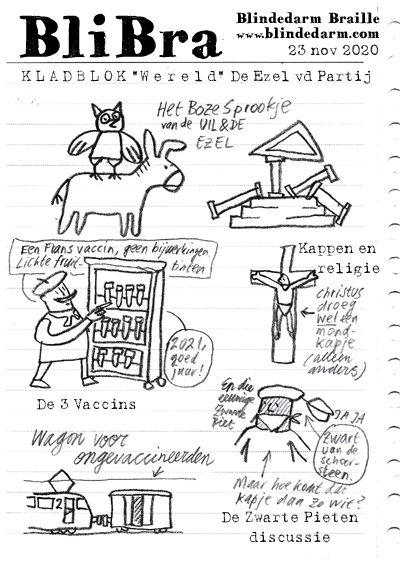 BliBra
Blindedarm Braille
www.blindedarm.com
23 nov 2020
KLADBLOK "Wereld" De Ezel vd Partij
Het Boze Sprookje
van de UIL & DE
EZEL
Een Frans vaccin, geen bijwerkingen,
Lichte fruit-
tinten
2021,
goed
jaar!
De 3 Vaccins
Kappen en
religie
christus
droeg
wel een
mond-
kapje
(alleen
anders)
Wagon voor
ongevaccineerden
2
En die
eeuwige
Zwarte
Piet
JA JA
Zwart
van de
schoor-
steen.
Maar hoe komt dat
kapje dan zo wit?
De Zwarte Pieten
discussie